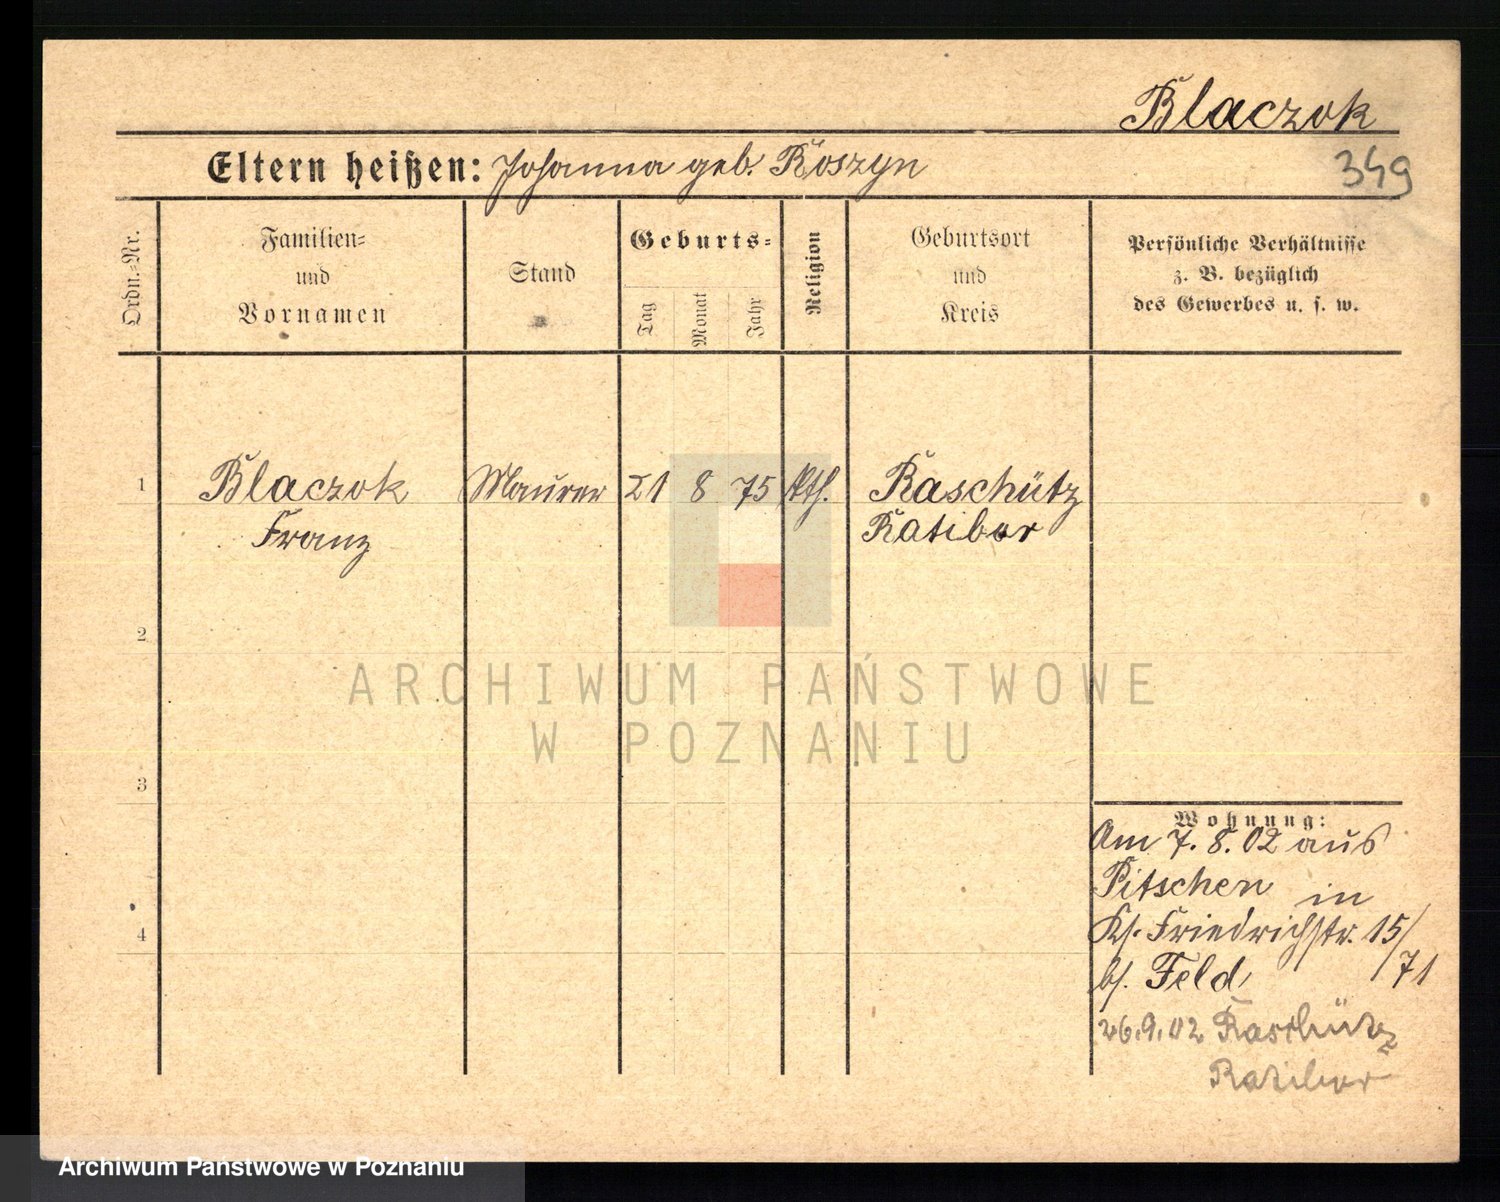 Blaczok
Eltern heißen: Johanna geb. Koszyn
349
Ordn.=Nr.
Familien=
und
Vornamen
Stand
Geburts=
Tag
Monat
Jahr
Religion
Geburtsort
und
Kreis
Persönliche Verhältnisse
z. B. bezüglich
des Gewerbes u. s. w.
1 Blaczok Maurer 21 8 75 kth. Raschütz
Franz Ratibor
2
3
4
Wohnung:
Am 7. 8. 02 aus
Pitschen in
Friedrichstr. 15/
71
b/. Feld
26.9.02 Raschütz
Ratibor
ARCHIWUM PAŃSTWOWE
W POZNANIU
Archiwum Państwowe w Poznaniu